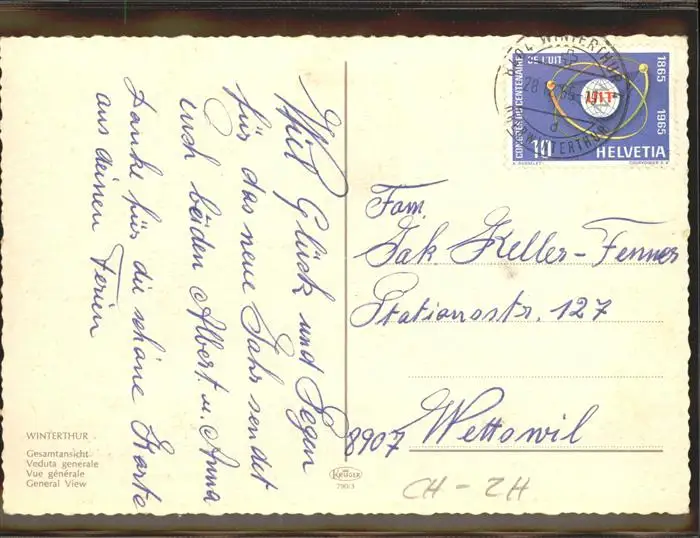 Viel Glück und Segen
für das neue Jahr sendet
euch beiden Albert u. Anna
Danke für die schöne Karte
aus deinen Ferien
WINTERTHUR
Gesamtansicht
Veduta generale
Vue générale
General View
KRÜGER
790/3
CONGRÈS DU CENTENAIRE
DE L'UIT
1865
1965
UIT
10
HELVETIA
COURVOISIER S.A.
WINTERTHUR
OBERWINTERTHUR
Fam.
Jak Keller-Fenner
Stationsstr. 127
8907 Wettswil
CH - ZH